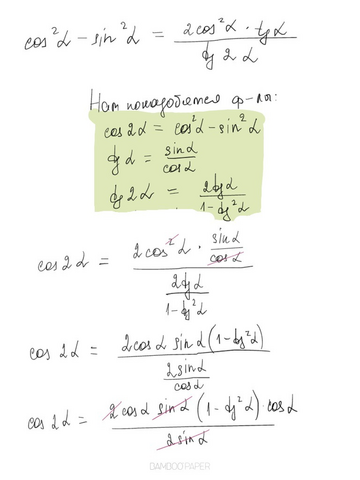 cos²α - sin²α = 2cos²α · tgα / tg 2α
Нам понадобятся ф-лы:
cos 2α = cos²α - sin²α
tg α = sinα / cosα
tg 2α = 2tgα / 1 - tg²α
cos 2α = 2 cos²α · sinα / cosα / 2tgα / 1 - tg²α
cos 2α = 2cosα sinα (1 - tg²α) / 2sinα / cosα
cos 2α = 2cosα sinα (1 - tg²α) · cosα / 2sinα
BAMBOO PAPER